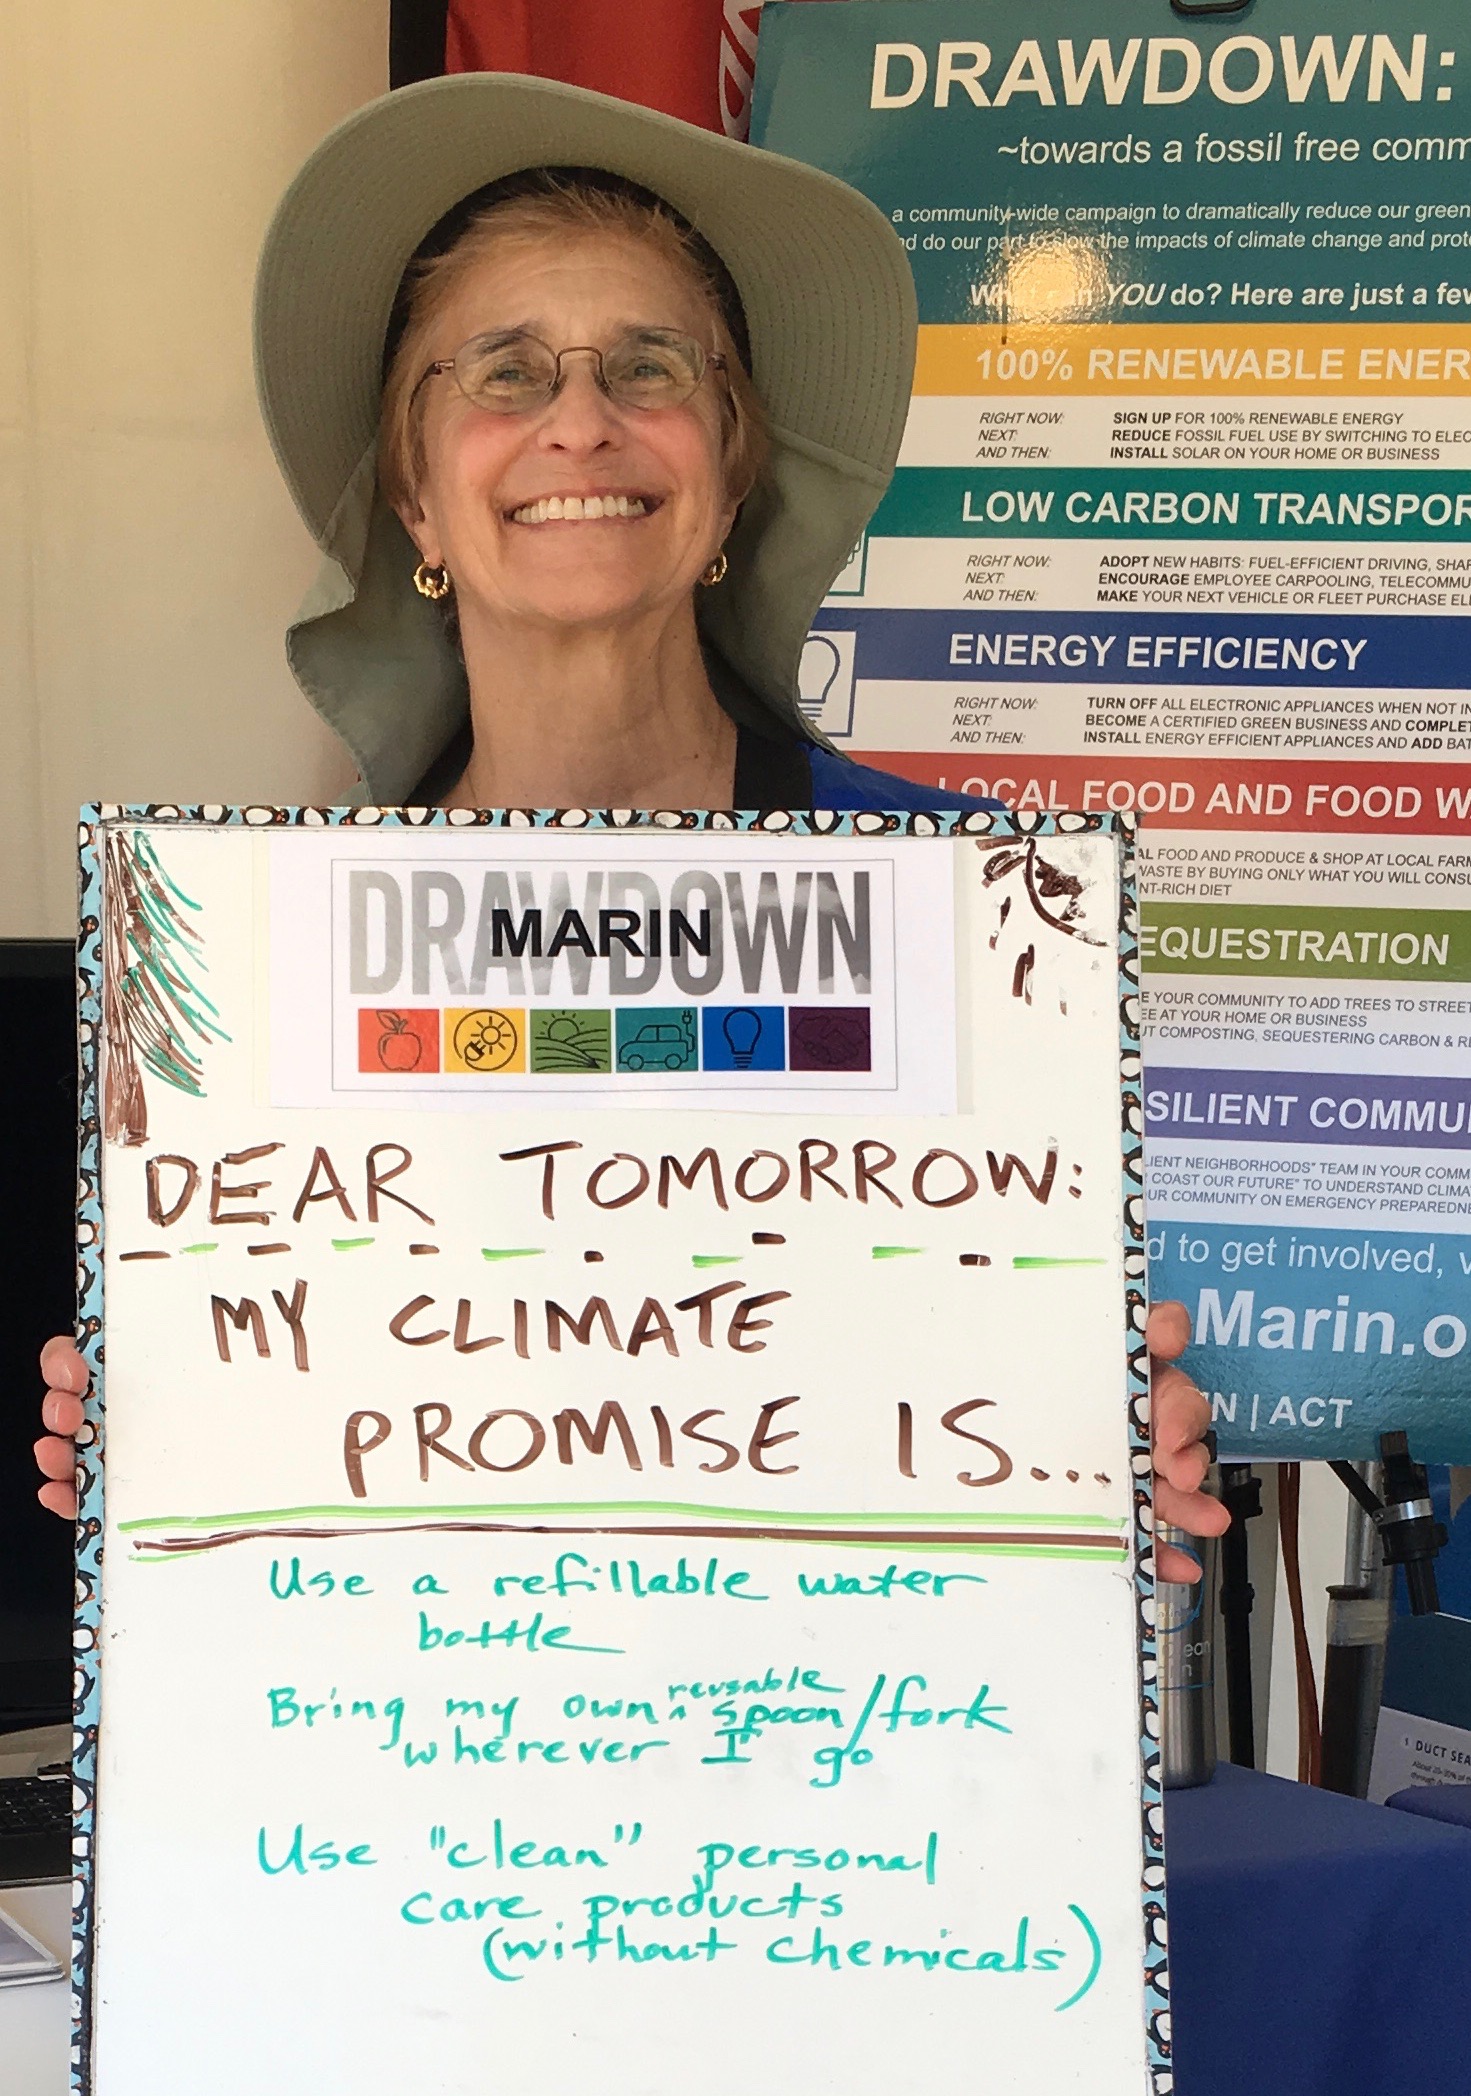 DRAWDOWN:
~towards a fossil free comm
a community-wide campaign to dramatically reduce our green
nd do our part to slow the impacts of climate change and prote
What can YOU do? Here are just a few
100% RENEWABLE ENER
RIGHT NOW: SIGN UP FOR 100% RENEWABLE ENERGY
NEXT: REDUCE FOSSIL FUEL USE BY SWITCHING TO ELEC
AND THEN: INSTALL SOLAR ON YOUR HOME OR BUSINESS
LOW CARBON TRANSPOR
RIGHT NOW: ADOPT NEW HABITS: FUEL-EFFICIENT DRIVING, SHAR
NEXT: ENCOURAGE EMPLOYEE CARPOOLING, TELECOMMU
AND THEN: MAKE YOUR NEXT VEHICLE OR FLEET PURCHASE ELE
ENERGY EFFICIENCY
RIGHT NOW: TURN OFF ALL ELECTRONIC APPLIANCES WHEN NOT IN
NEXT: BECOME A CERTIFIED GREEN BUSINESS AND COMPLET
AND THEN: INSTALL ENERGY EFFICIENT APPLIANCES AND ADD BAT
LOCAL FOOD AND FOOD W
AL FOOD AND PRODUCE & SHOP AT LOCAL FARM
WASTE BY BUYING ONLY WHAT YOU WILL CONSU
NT-RICH DIET
EQUESTRATION
E YOUR COMMUNITY TO ADD TREES TO STREET
EE AT YOUR HOME OR BUSINESS
UT COMPOSTING, SEQUESTERING CARBON & RE
SILIENT COMMU
LIENT NEIGHBORHOODS" TEAM IN YOUR COMM
COAST OUR FUTURE" TO UNDERSTAND CLIMA
UR COMMUNITY ON EMERGENCY PREPAREDNE
d to get involved, v
Marin.o
N | ACT
DRAWDOWN
MARIN
DEAR TOMORROW:
MY CLIMATE
PROMISE IS...
Use a refillable water
bottle
Bring my own ^ reusable spoon/fork
wherever I go
Use "clean" personal
care products
(without chemicals)
DUCT SEA